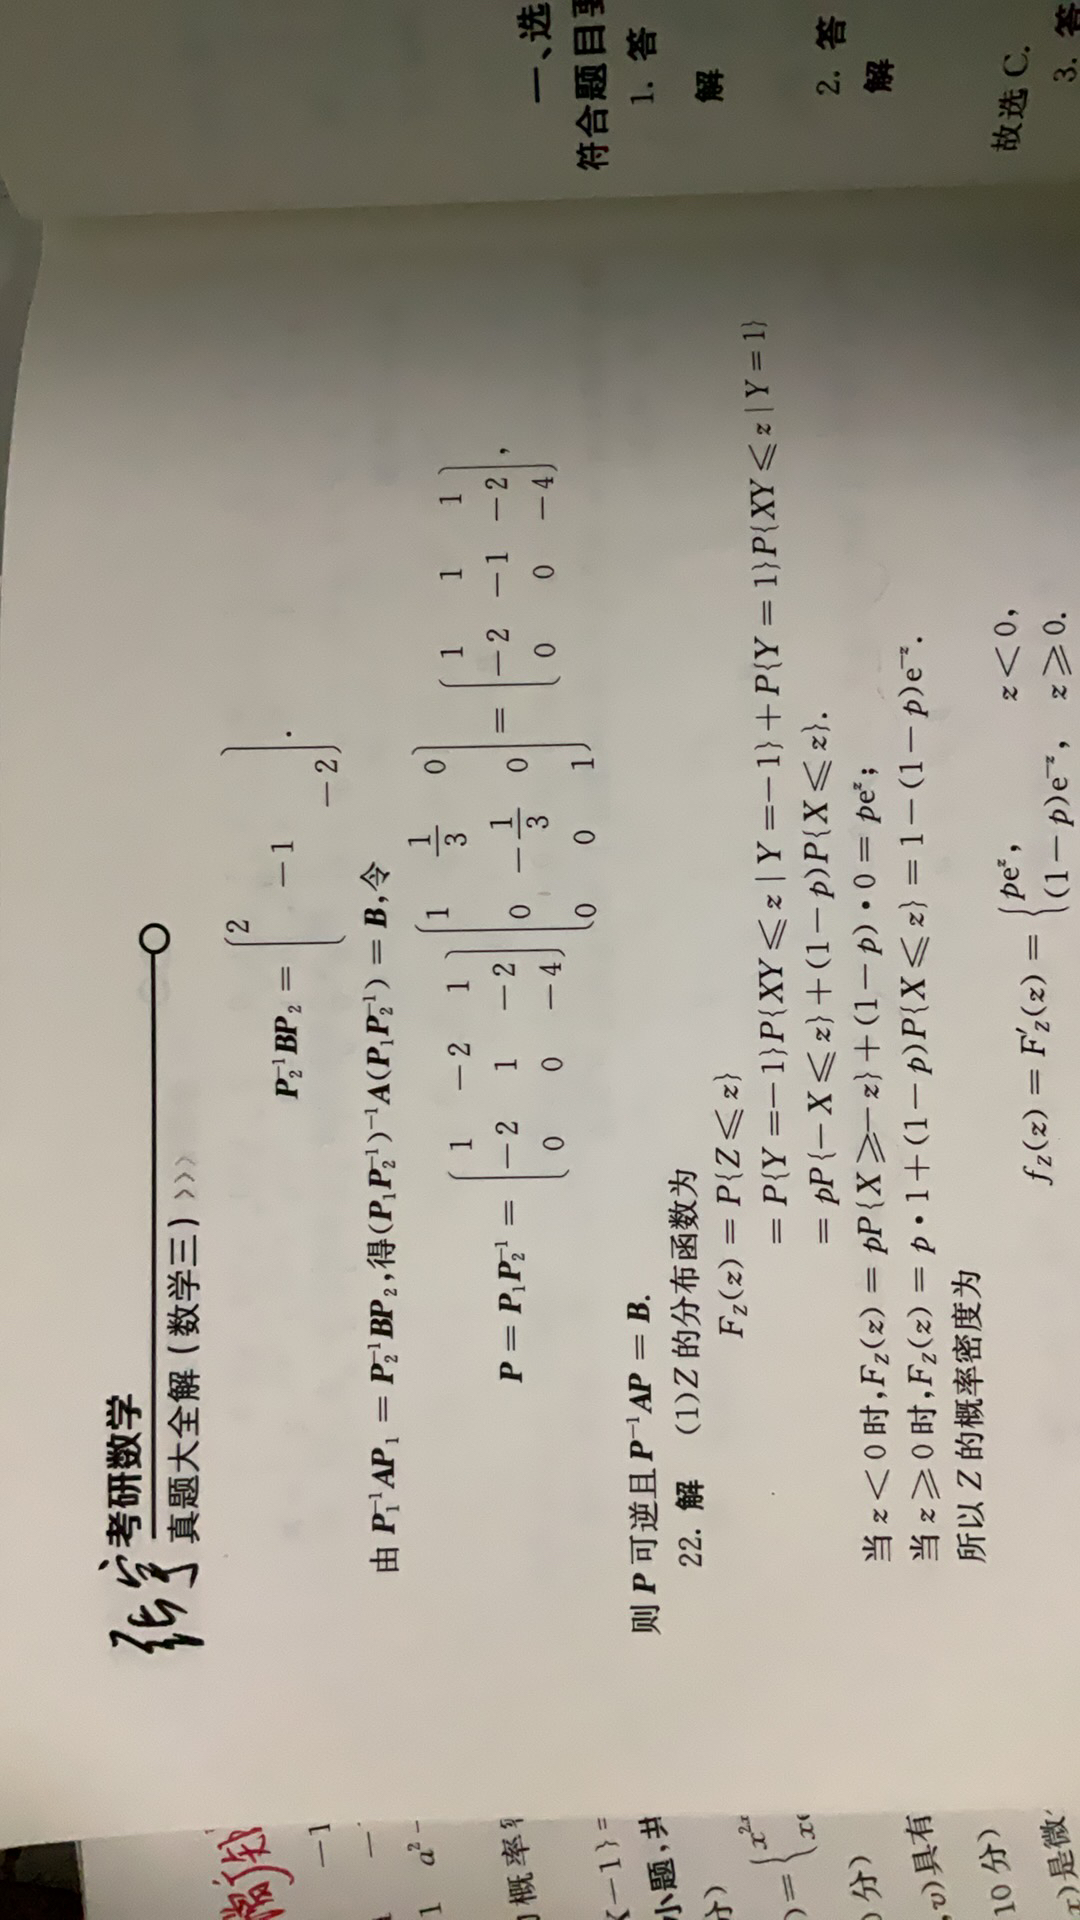 张宇 考研数学
真题大全解(数学三) >>>
P₂⁻¹BP₂ = ( 2 -1 -2 ).
由 P₁⁻¹AP₁ = P₂⁻¹BP₂,得(P₁P₂⁻¹)⁻¹A(P₁P₂⁻¹) = B,令
P = P₁P₂⁻¹ = ( 1 -2 1 ; -2 1 -2 ; 0 0 -4 )( 1 1/3 0 ; 0 -1/3 0 ; 0 0 1 ) = ( 1 1 1 ; -2 -1 -2 ; 0 0 -4 ),
则 P 可逆且 P⁻¹AP = B.
22. 解 (1)Z 的分布函数为
F_Z(z) = P{Z ⩽ z}
= P{Y = -1}P{XY ⩽ z | Y = -1} + P{Y = 1}P{XY ⩽ z | Y = 1}
= pP{-X ⩽ z} + (1 - p)P{X ⩽ z}.
当 z < 0 时,F_Z(z) = pP{X ⩾ -z} + (1 - p)·0 = pe^z;
当 z ⩾ 0 时,F_Z(z) = p·1 + (1 - p)P{X ⩽ z} = 1 - (1 - p)e^{-z}.
所以 Z 的概率密度为
f_Z(z) = F′_Z(z) = { pe^z, z < 0,
(1 - p)e^{-z}, z ⩾ 0.
一、选
符合题目要
1. 答
解
2. 答
解
故选 C.
3. 答
-1
1 a² -
概率
X - 1} =
小题,共
分)
) = { x^{2x}
分)
,v)具有
10 分)
x)是微